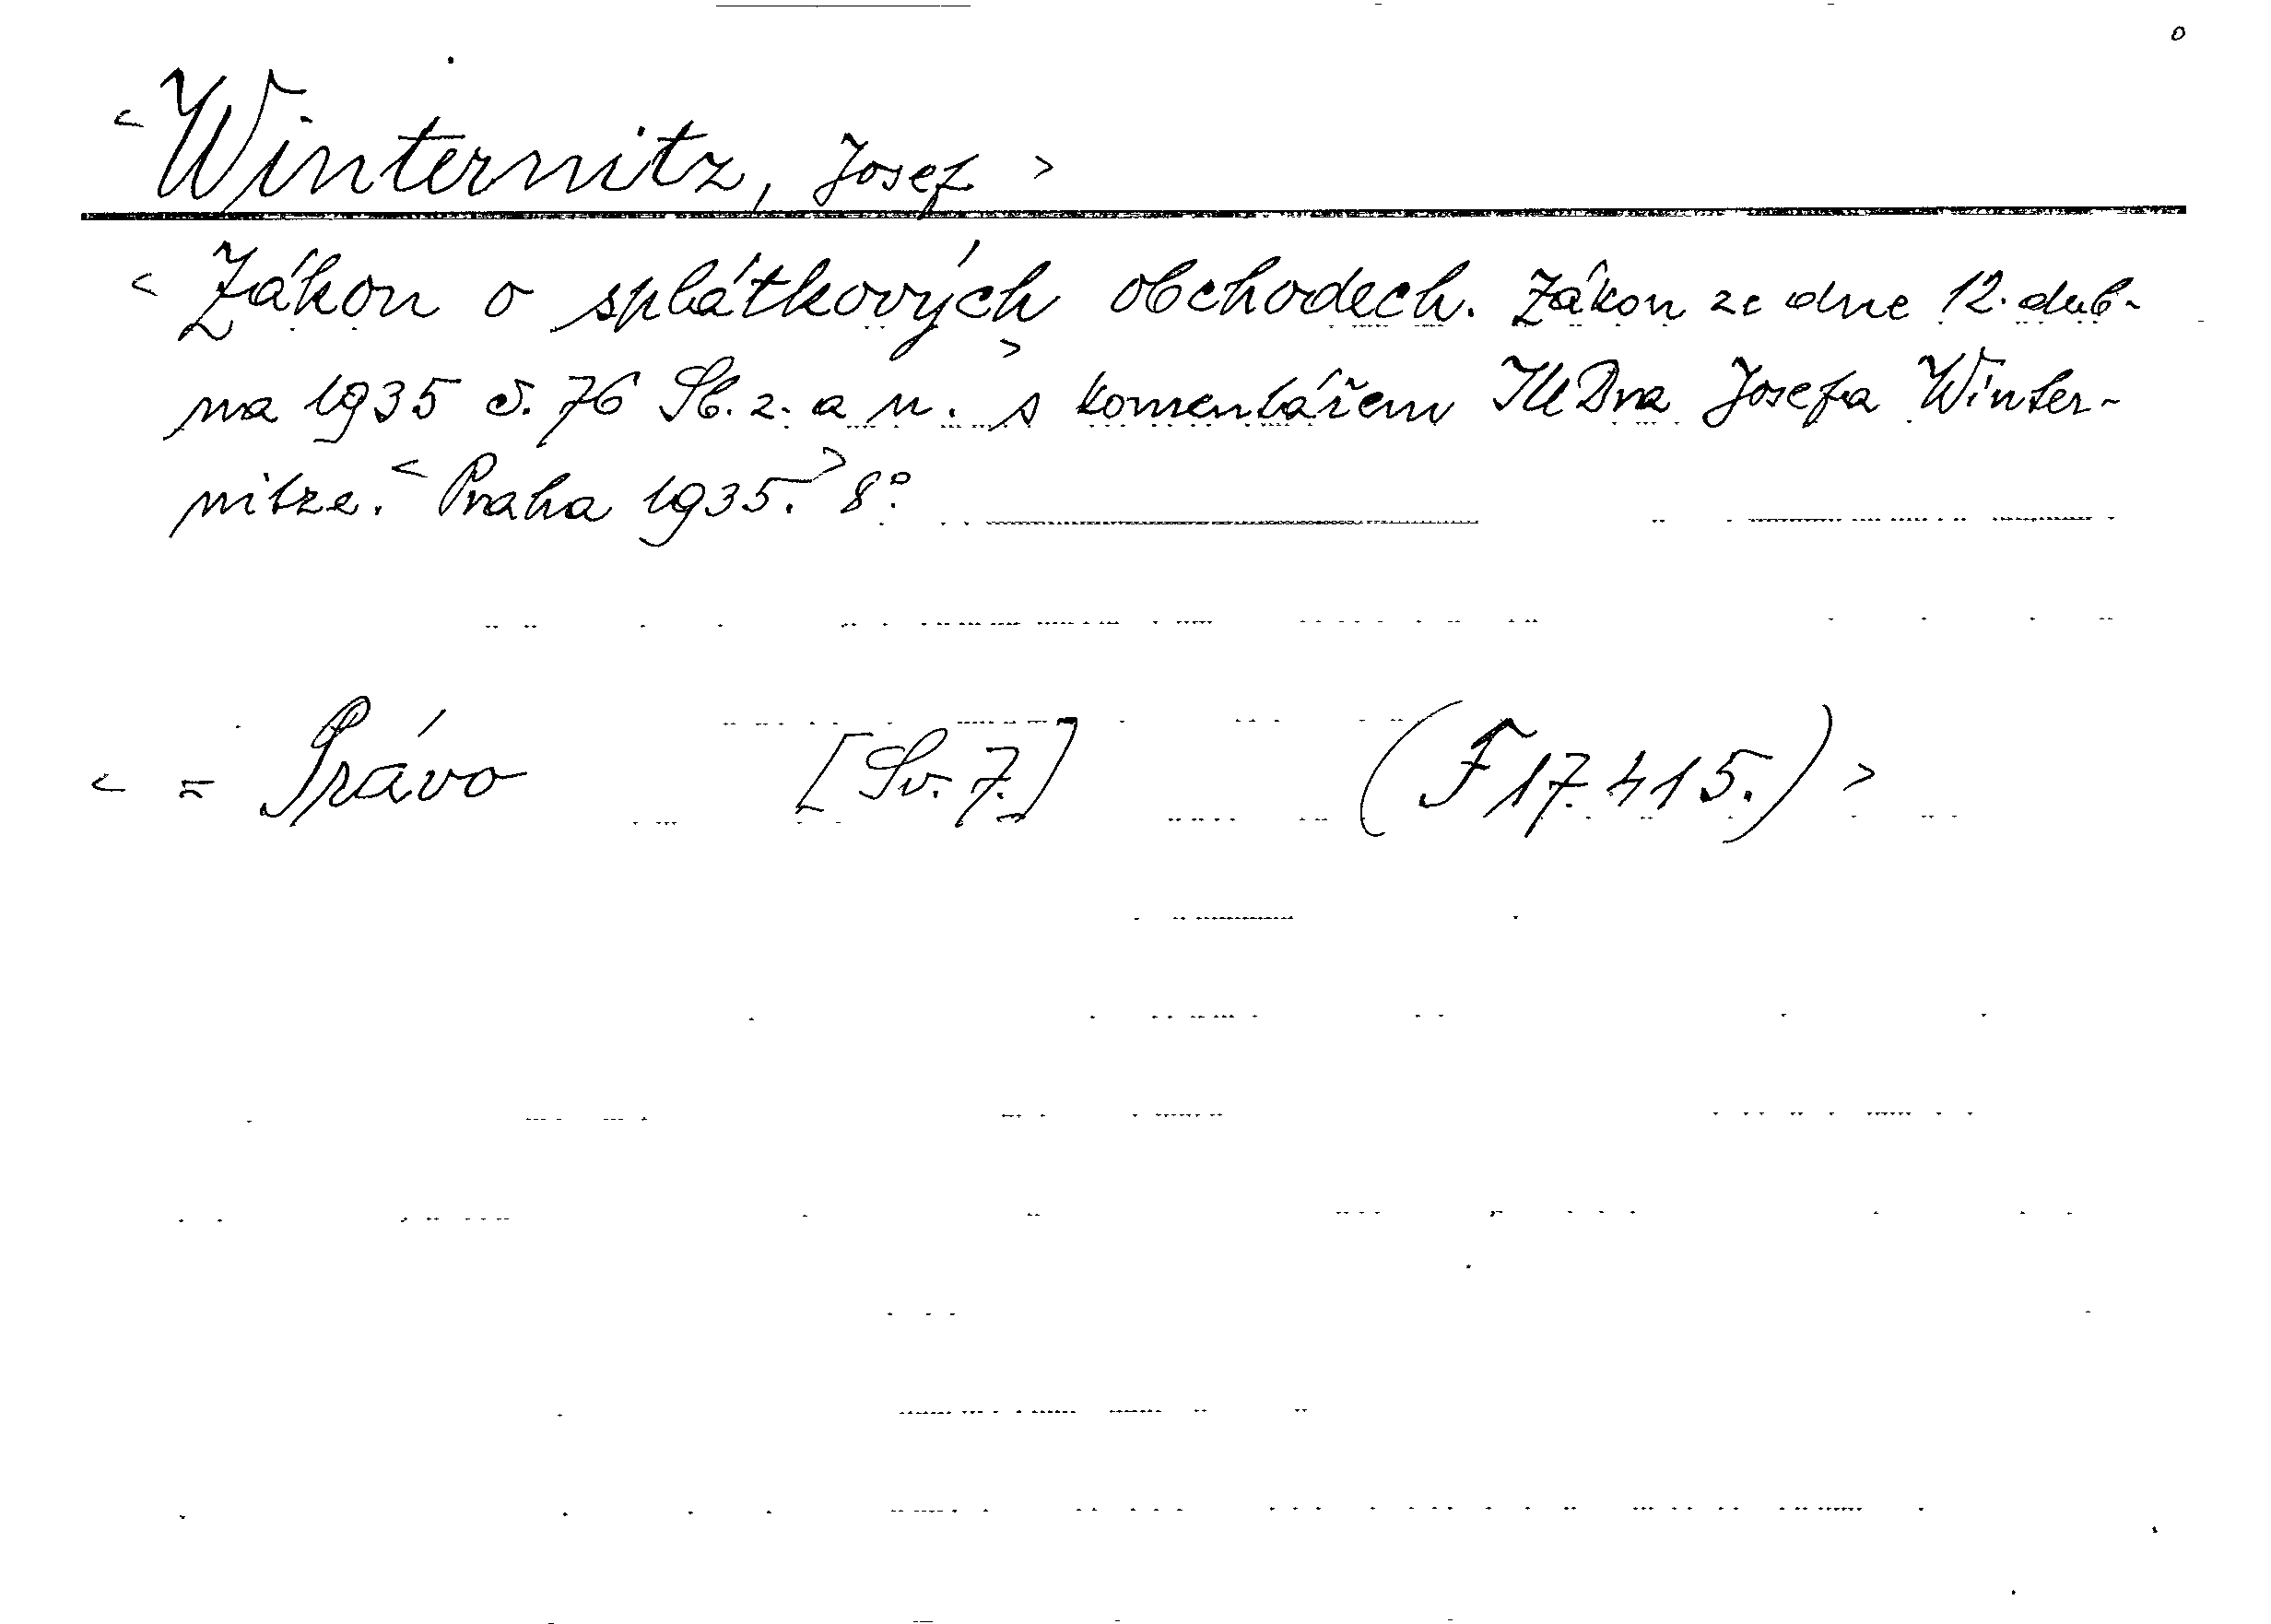 < Winternitz, Josef >
< Zákon o splátkových obchodech. Zákon ze dne 12. dub-
na 1935 č. 76 Sb. z. a n. > s komentářem JUDra Josefa Winter-
nitze. < Praha 1935. > 8°
< = Právo [Sv. 7.] (F 17.415.) >